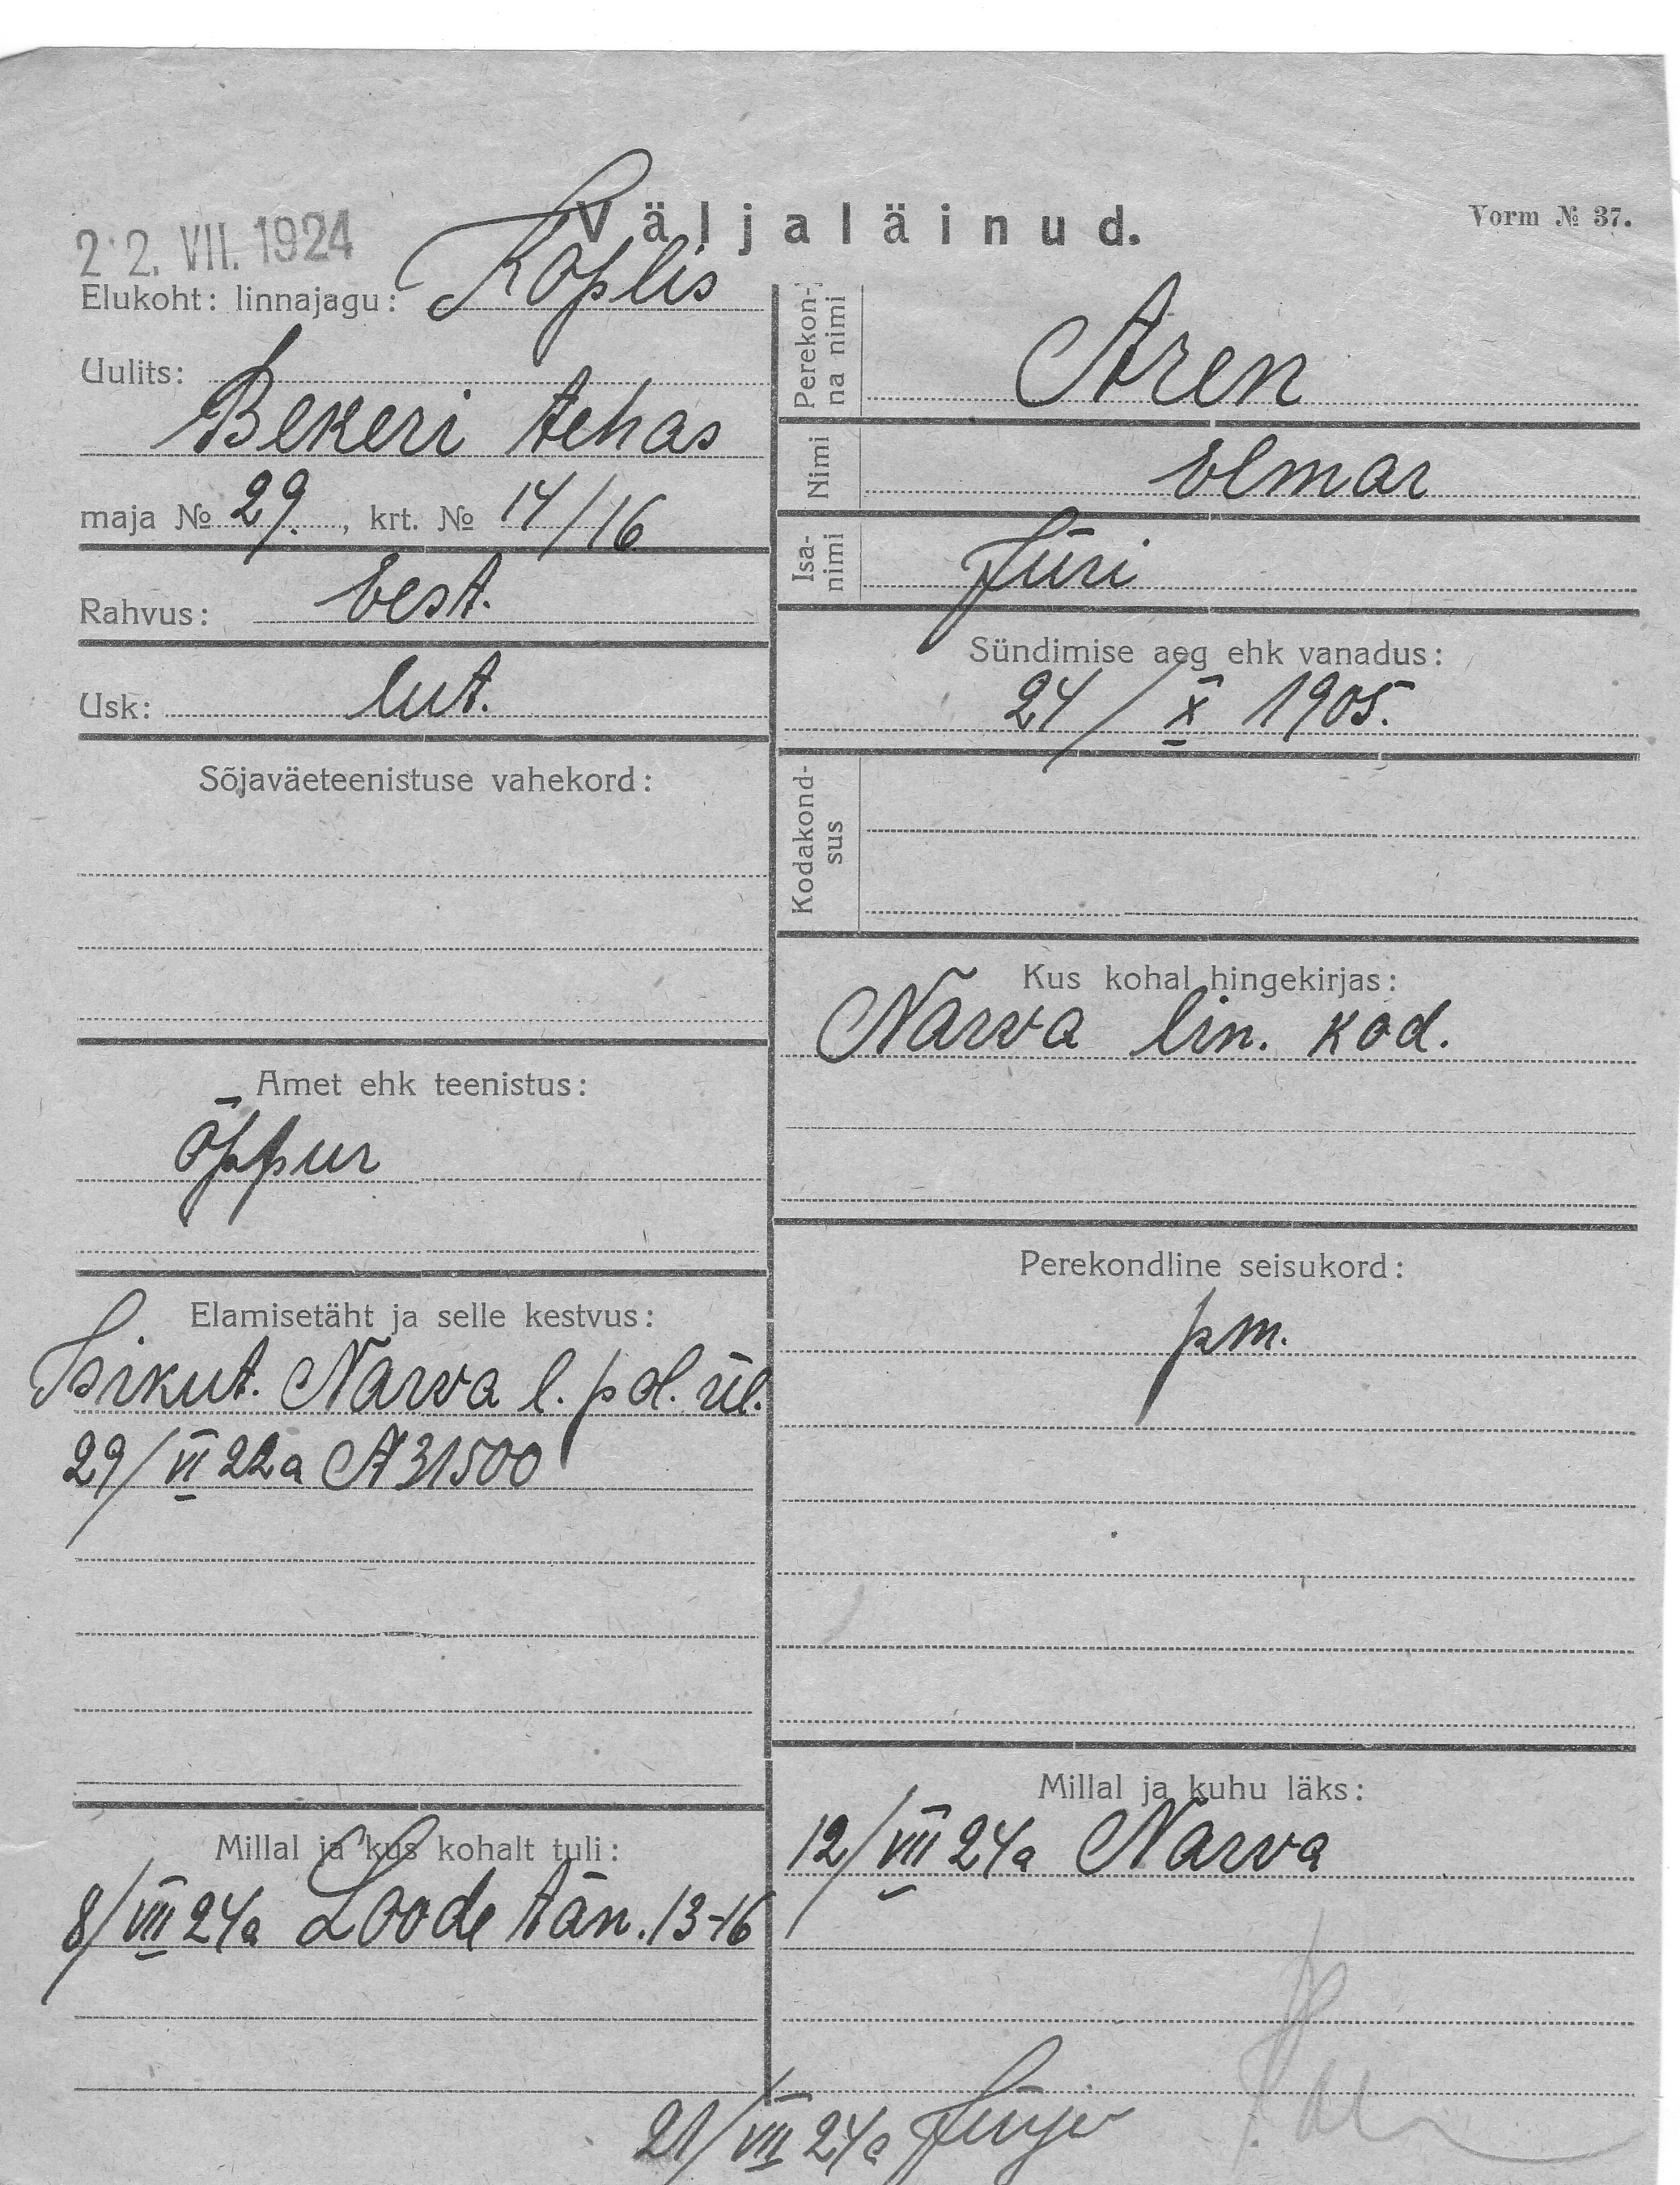 Väljaläinud.
Vorm № 37.
22. VII. 1924
Elukoht: linnajagu: Koplis
Uulits:
Bekeri tehas
maja № 29., krt. № 14/16
Rahvus: eest.
Usk: lut.
Sõjaväeteenistuse vahekord:
Amet ehk teenistus:
õppur
Elamisetäht ja selle kestvus:
Isikut. Narva l. pol. ül.
29/VI 22a A 31500
Millal ja kus kohalt tuli:
8/VII 24a Loode tän. 13-16
Perekon-
na nimi
Aren
Nimi
Elmar
Isa-
nimi
Jüri
Sündimise aeg ehk vanadus:
24/X 1905.
Kodakond-
sus
Kus kohal hingekirjas:
Narva lin. kod.
Perekondline seisukord:
pm.
Millal ja kuhu läks:
12/VII 24a Narva
21/VII 24a